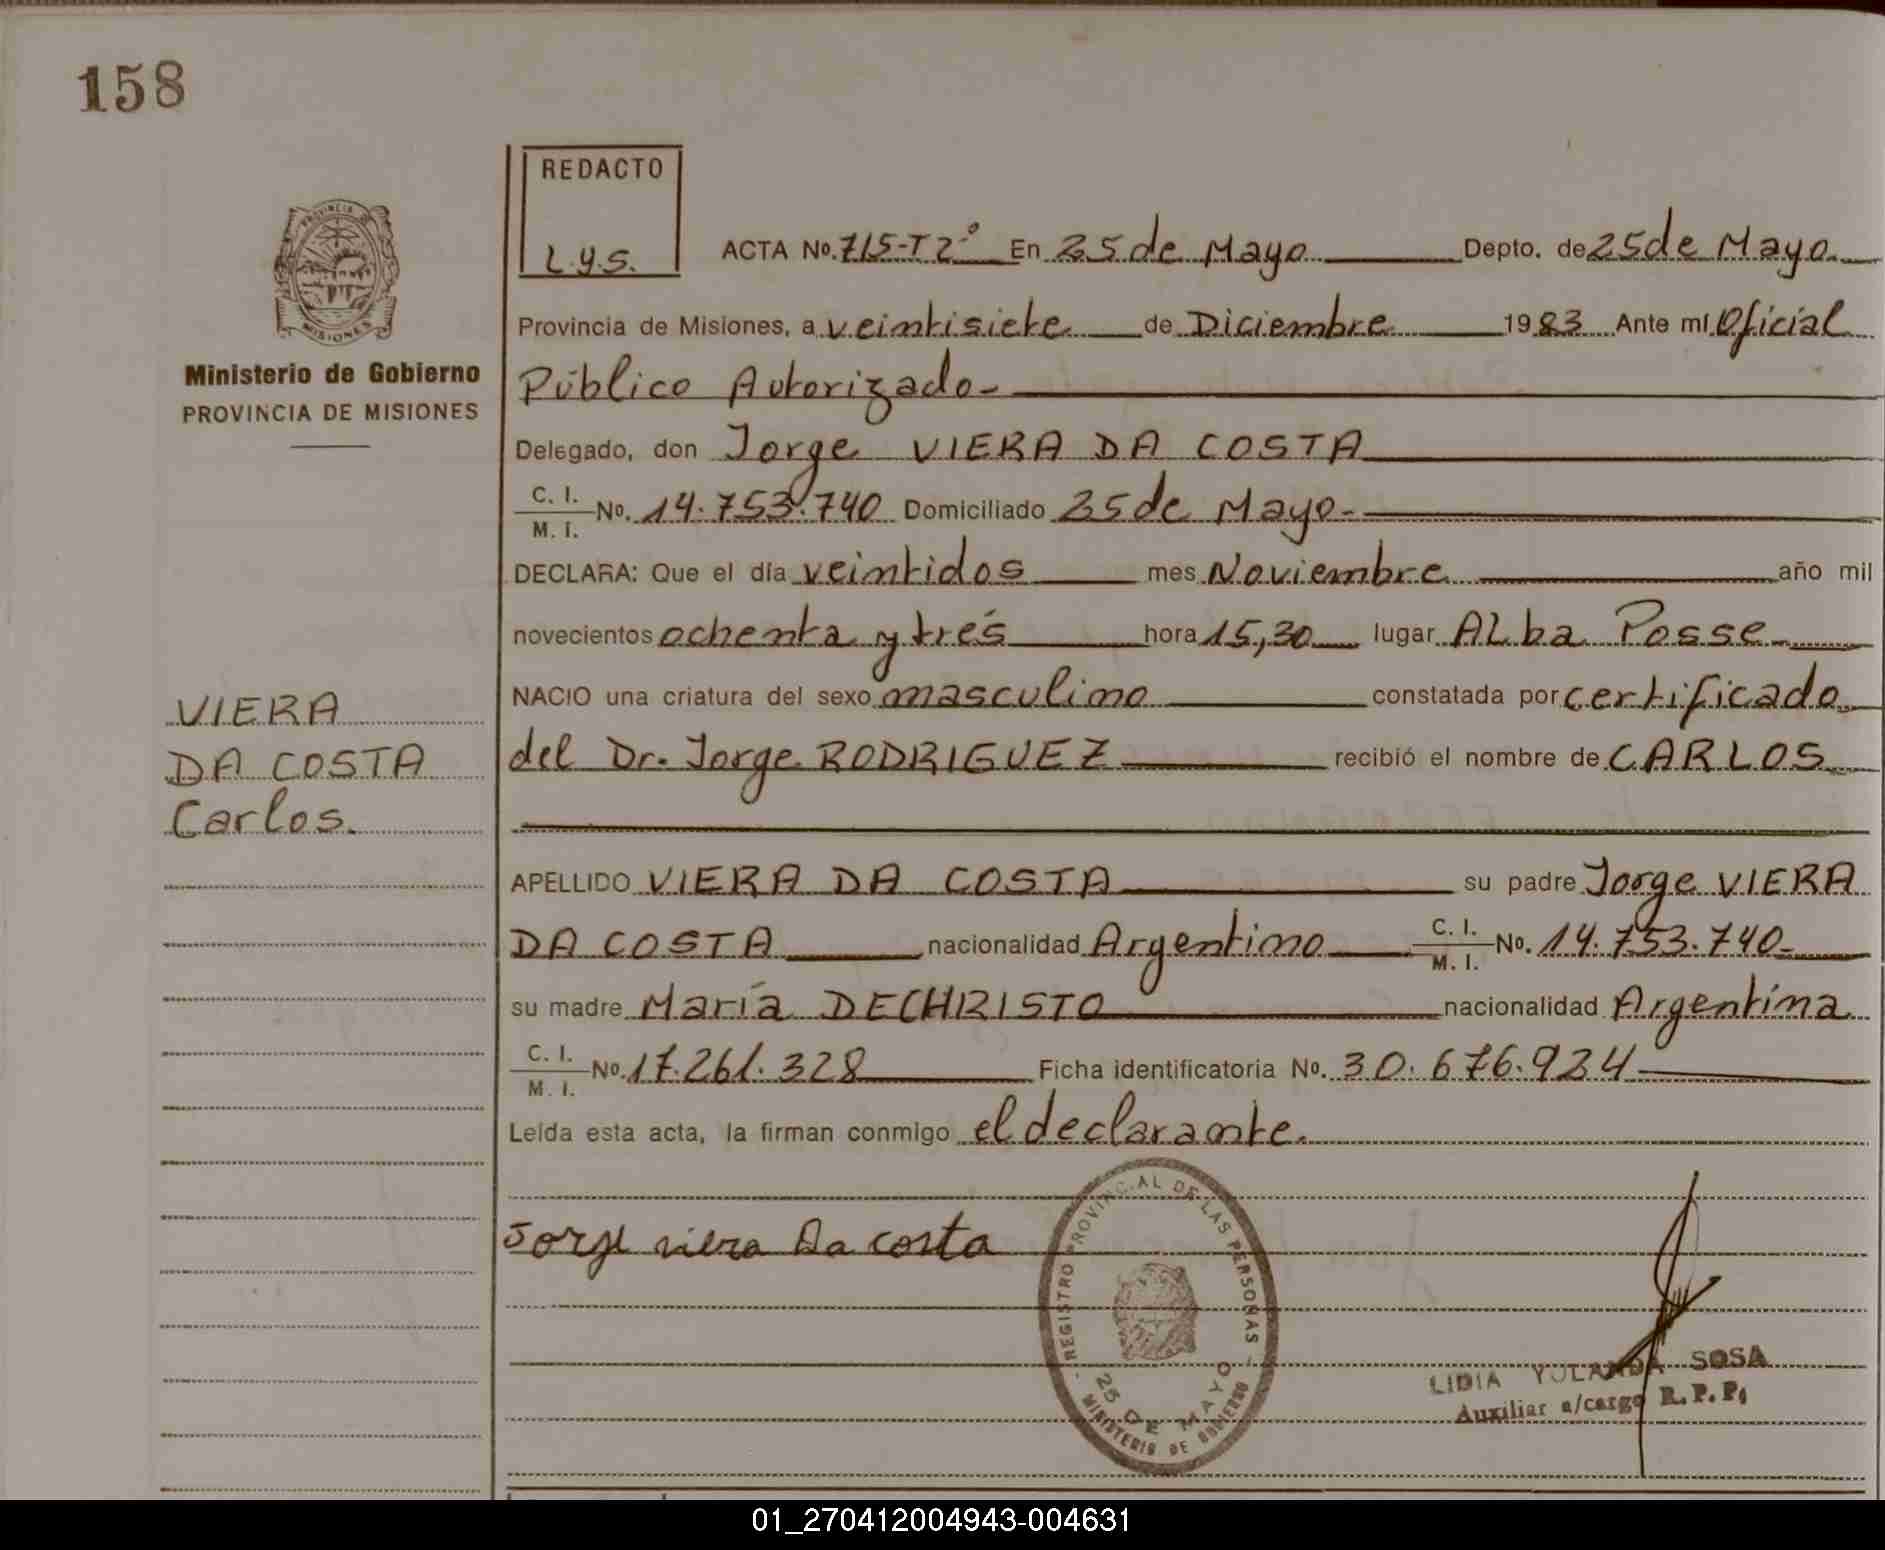 158
REDACTO
L.y.S.
ACTA No. 715-T2º En 25 de Mayo Depto. de 25 de Mayo
Provincia de Misiones, a veintisiete de Diciembre 1983 Ante mí Oficial
Público Autorizado-
Delegado, don Jorge VIERA DA COSTA
C. I.
M. I. No. 14.753.740 Domiciliado 25 de Mayo-
DECLARA: Que el día veintidos mes Noviembre año mil
novecientos ochenta y trés hora 15,30 lugar ALba Posse
NACIO una criatura del sexo masculino constatada por certificado
del Dr. Jorge RODRIGUEZ recibió el nombre de CARLOS
APELLIDO VIERA DA COSTA su padre Jorge VIERA
DA COSTA nacionalidad Argentino C. I.
M. I. No. 14.753.740-
su madre María DECHRISTO nacionalidad Argentina
C. I.
M. I. No. 17.261.328 Ficha identificatoria No. 30.676.924
Leída esta acta, la firman conmigo el declarante.
Jorge viera Da costa
PROVINCIA DE
MISIONES
Ministerio de Gobierno
PROVINCIA DE MISIONES
VIERA
DA COSTA
Carlos.
- REGISTRO PROVINCIAL DE LAS PERSONAS -
25 DE MAYO
MINISTERIO DE GOBIERNO
LIDIA YOLANDA SOSA
Auxiliar a/cargo R. P. P.
01_270412004943-004631